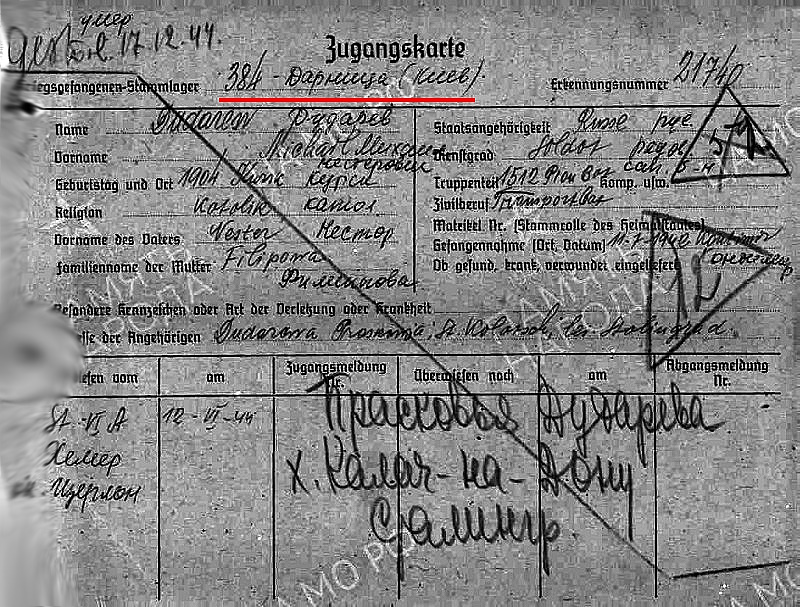 умер
gest. 17.12.44.
Zugangskarte
Kriegsgefangenen-Stammlager 384 - Дарница (Киев). Erkennungsnummer 21740
Name Dudarew Дударев
Staatsangehörigkeit Russe рус.
Vorname Michael Михаил
Нестерович
Dienstgrad Soldat рядов.
Geburtstag und Ort 1904 Kursk Курск
Truppenteil 1512 Komp. usw.
Religion Katolik катол
Zivilberuf
Matrikel Nr. (Stammrolle des Heimatstaates)
Vorname des Vaters Nester Нестор
Gefangennahme (Ort, Datum)
Familienname der Mutter Filipowa
Филиппова
Ob gefund, krank, verwundet eingeliefert
12
Besondere Kennzeichen oder Art der Verletzung oder Krankheit
der Angehörigen Dudarewa bei Stalingrad.
vom am Zugangsmeldung Nr. Überwiesen nach am Abgangsmeldung Nr.
St. VI A 12-VII-44
Хемер
Изерлон
Прасковья Дударева
х. Калач-на-Дону
Сталингр.
ПАМЯТЬ НАРОДА
ЦАМО РФ